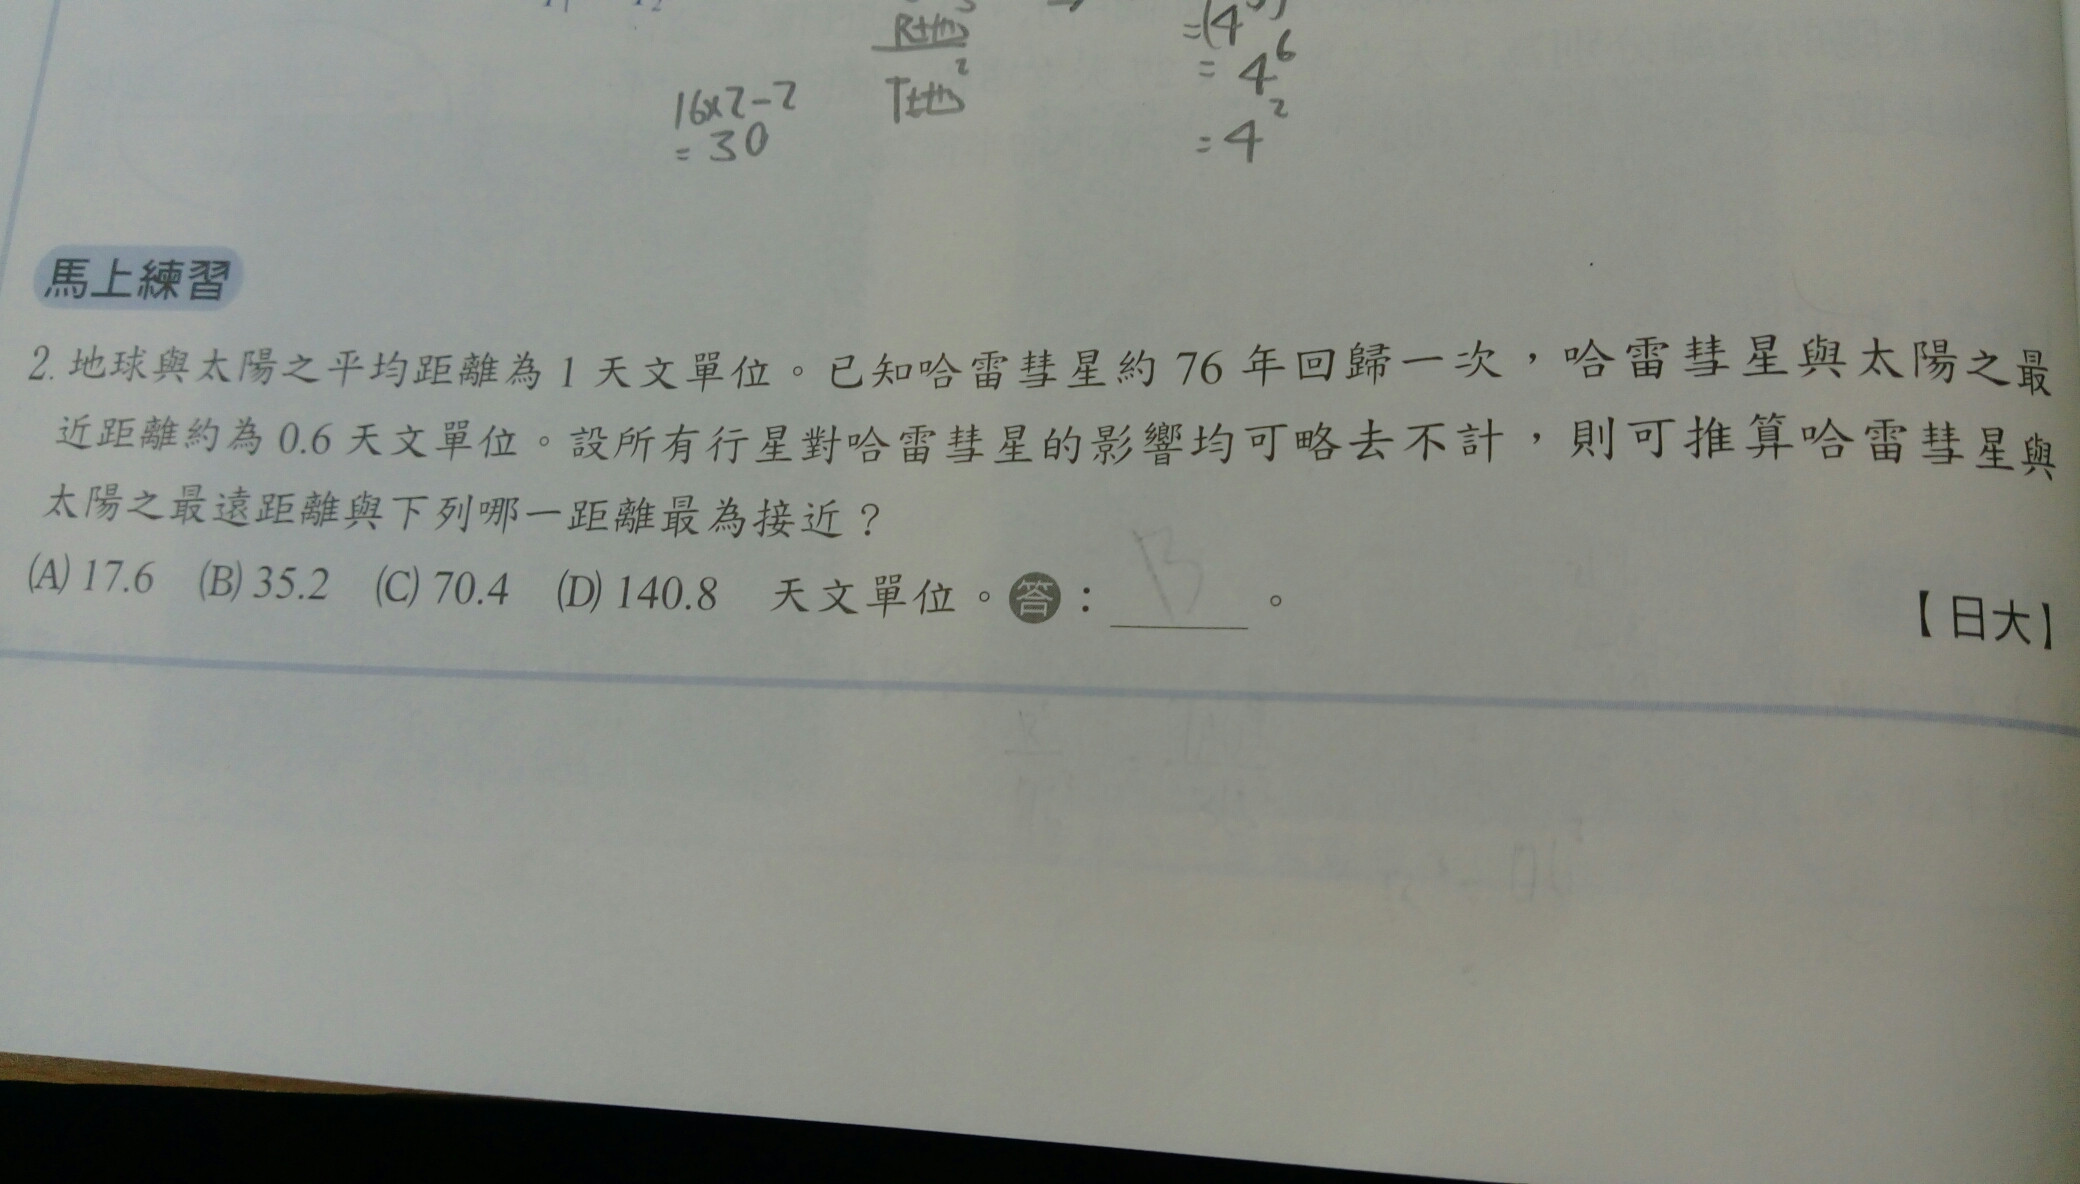 = 4⁶
16×2-2
= 30
= 4²
馬上練習
2. 地球與太陽之平均距離為 1 天文單位。已知哈雷彗星約 76 年回歸一次，哈雷彗星與太陽之最
近距離約為 0.6 天文單位。設所有行星對哈雷彗星的影響均可略去不計，則可推算哈雷彗星與
太陽之最遠距離與下列哪一距離最為接近？
(A) 17.6 (B) 35.2 (C) 70.4 (D) 140.8 天文單位。答：B。
【日大】